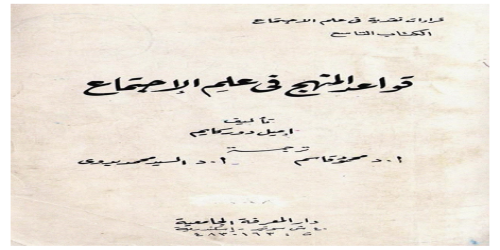 قراءات نقدية فى علم الاجتماع
الكتاب التاسع
قواعد المنهج فى علم الاجتماع
تأليف
اميل دوركايم
ترجمة
أ.د محمود قاسم أ.د السيد محمد بدوى
دار المعرفة الجامعية